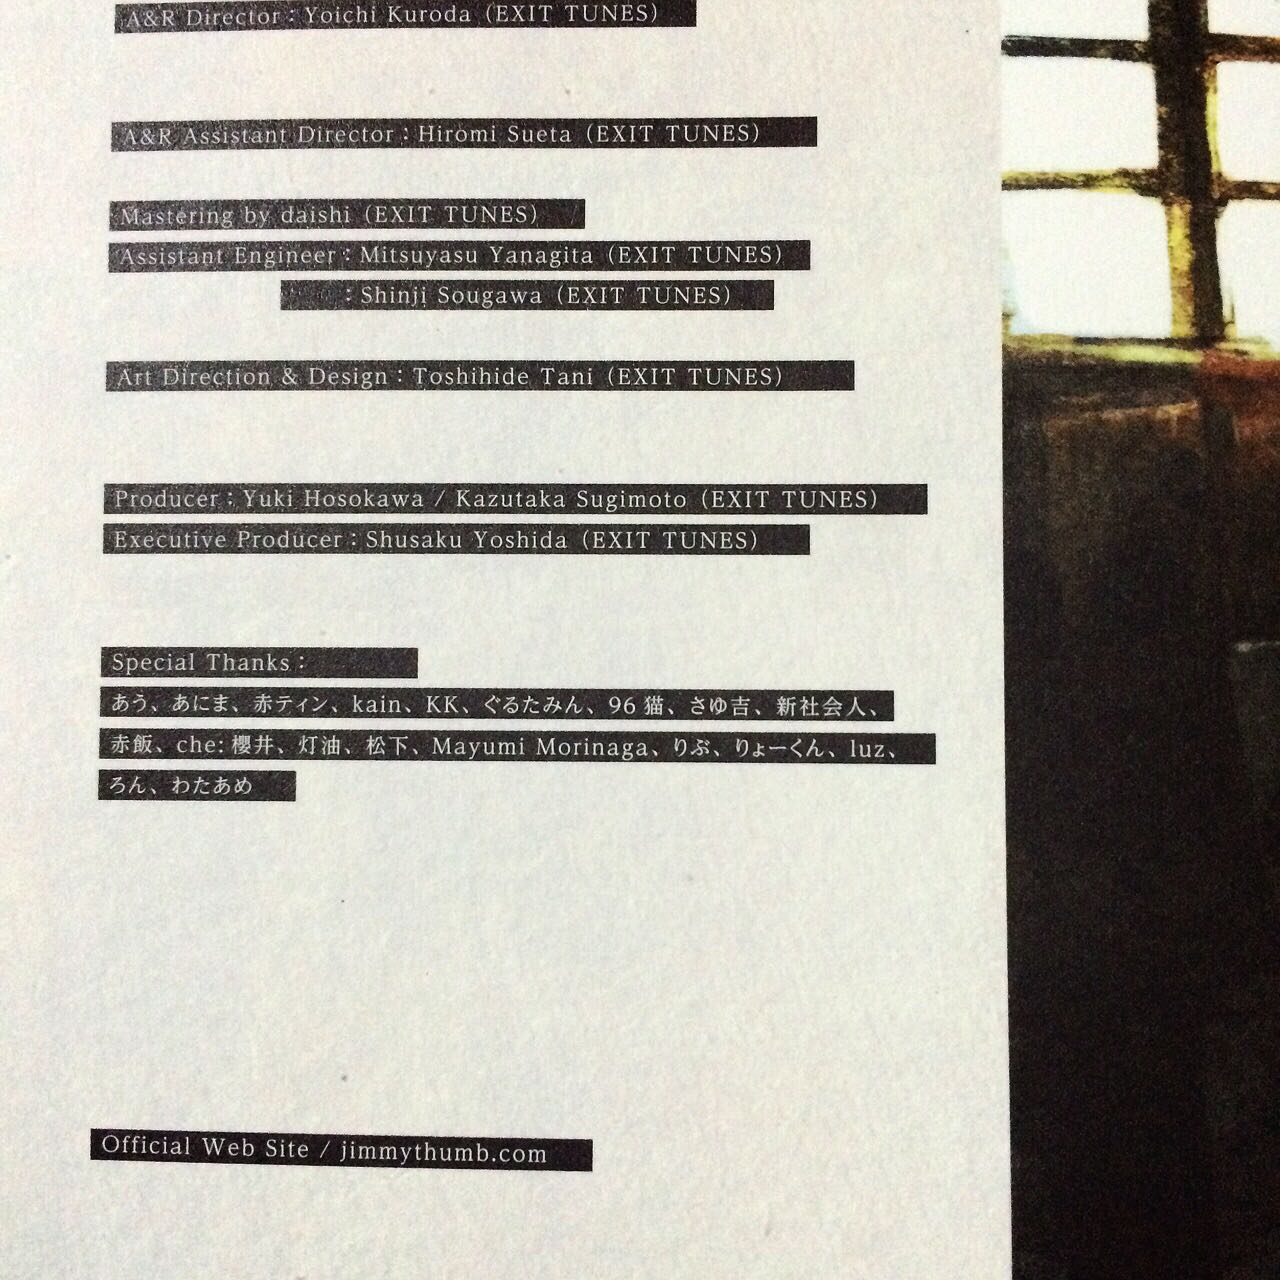 A&R Director：Yoichi Kuroda（EXIT TUNES）
A&R Assistant Director：Hiromi Sueta（EXIT TUNES）
Mastering by daishi（EXIT TUNES）
Assistant Engineer：Mitsuyasu Yanagita（EXIT TUNES）
：Shinji Sougawa（EXIT TUNES）
Art Direction & Design：Toshihide Tani（EXIT TUNES）
Producer：Yuki Hosokawa / Kazutaka Sugimoto（EXIT TUNES）
Executive Producer：Shusaku Yoshida（EXIT TUNES）
Special Thanks：
あう、あにま、赤ティン、kain、KK、ぐるたみん、96猫、さゆ吉、新社会人、
赤飯、che:櫻井、灯油、松下、Mayumi Morinaga、りぶ、りょーくん、luz、
ろん、わたあめ
Official Web Site / jimmythumb.com